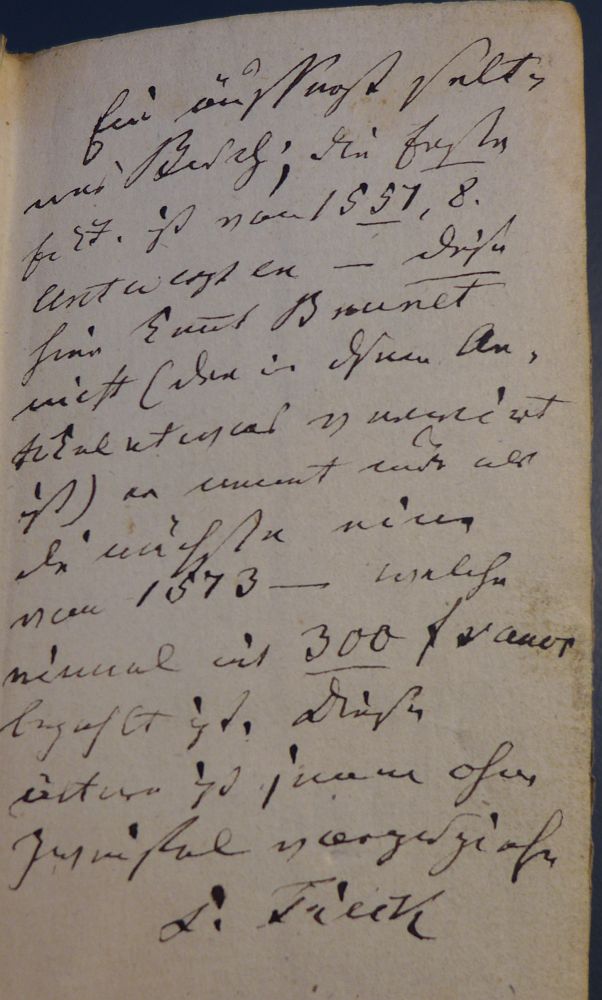 Ein äusserst selte-
nes Buch; die Erste
Edit. ist von 1551, 8.
Antwerpen — diese
hier kennt Brunet
nicht (der in diesem Ar-
tikel etwas verwirrt
ist) er nennt nur als
die nächste eine
von 1573 — welche
einmal mit 300 francs
bezahlt ist. Diese
ältere ist jenen ohne
Zweifel vorzuziehen
L. Tieck